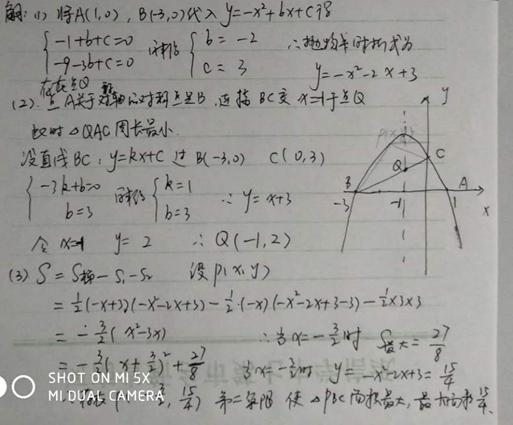 解：(1) 将A(1,0)，B(-3,0)代入 y=-x²+bx+c得
{-1+b+c=0 -9-3b+c=0 解得 {b=-2 c=3 ∴抛物线解析式为
y=-x²-2x+3
存在点Q
(2). 点A关于对称轴的对称点是B，连接BC交x=-1于点Q
此时△QAC周长最小.
设直线BC：y=kx+c 过B(-3,0) C(0,3)
{-3k+b=0 b=3 解得 {k=1 b=3 ∴ y=x+3
令 x=-1 y=2 ∴ Q(-1,2)
(3) S=S梯-S₁-S₂ 设P(x,y)
=½(-x+3)(-x²-2x+3)-½·(-x)(-x²-2x+3-3)-½×3×3
=-3/2(x²-3x) ∴当x=-3/2时 S最大=27/8
=-3/2(x+3/2)²+27/8 当x=-3/2时 y=-x²-2x+3=15/4
15/4) 第二象限 使△PBC面积最大，最大面积
y
C
Q
B
A
-3
-1
1
x
SHOT ON MI 5X
MI DUAL CAMERA